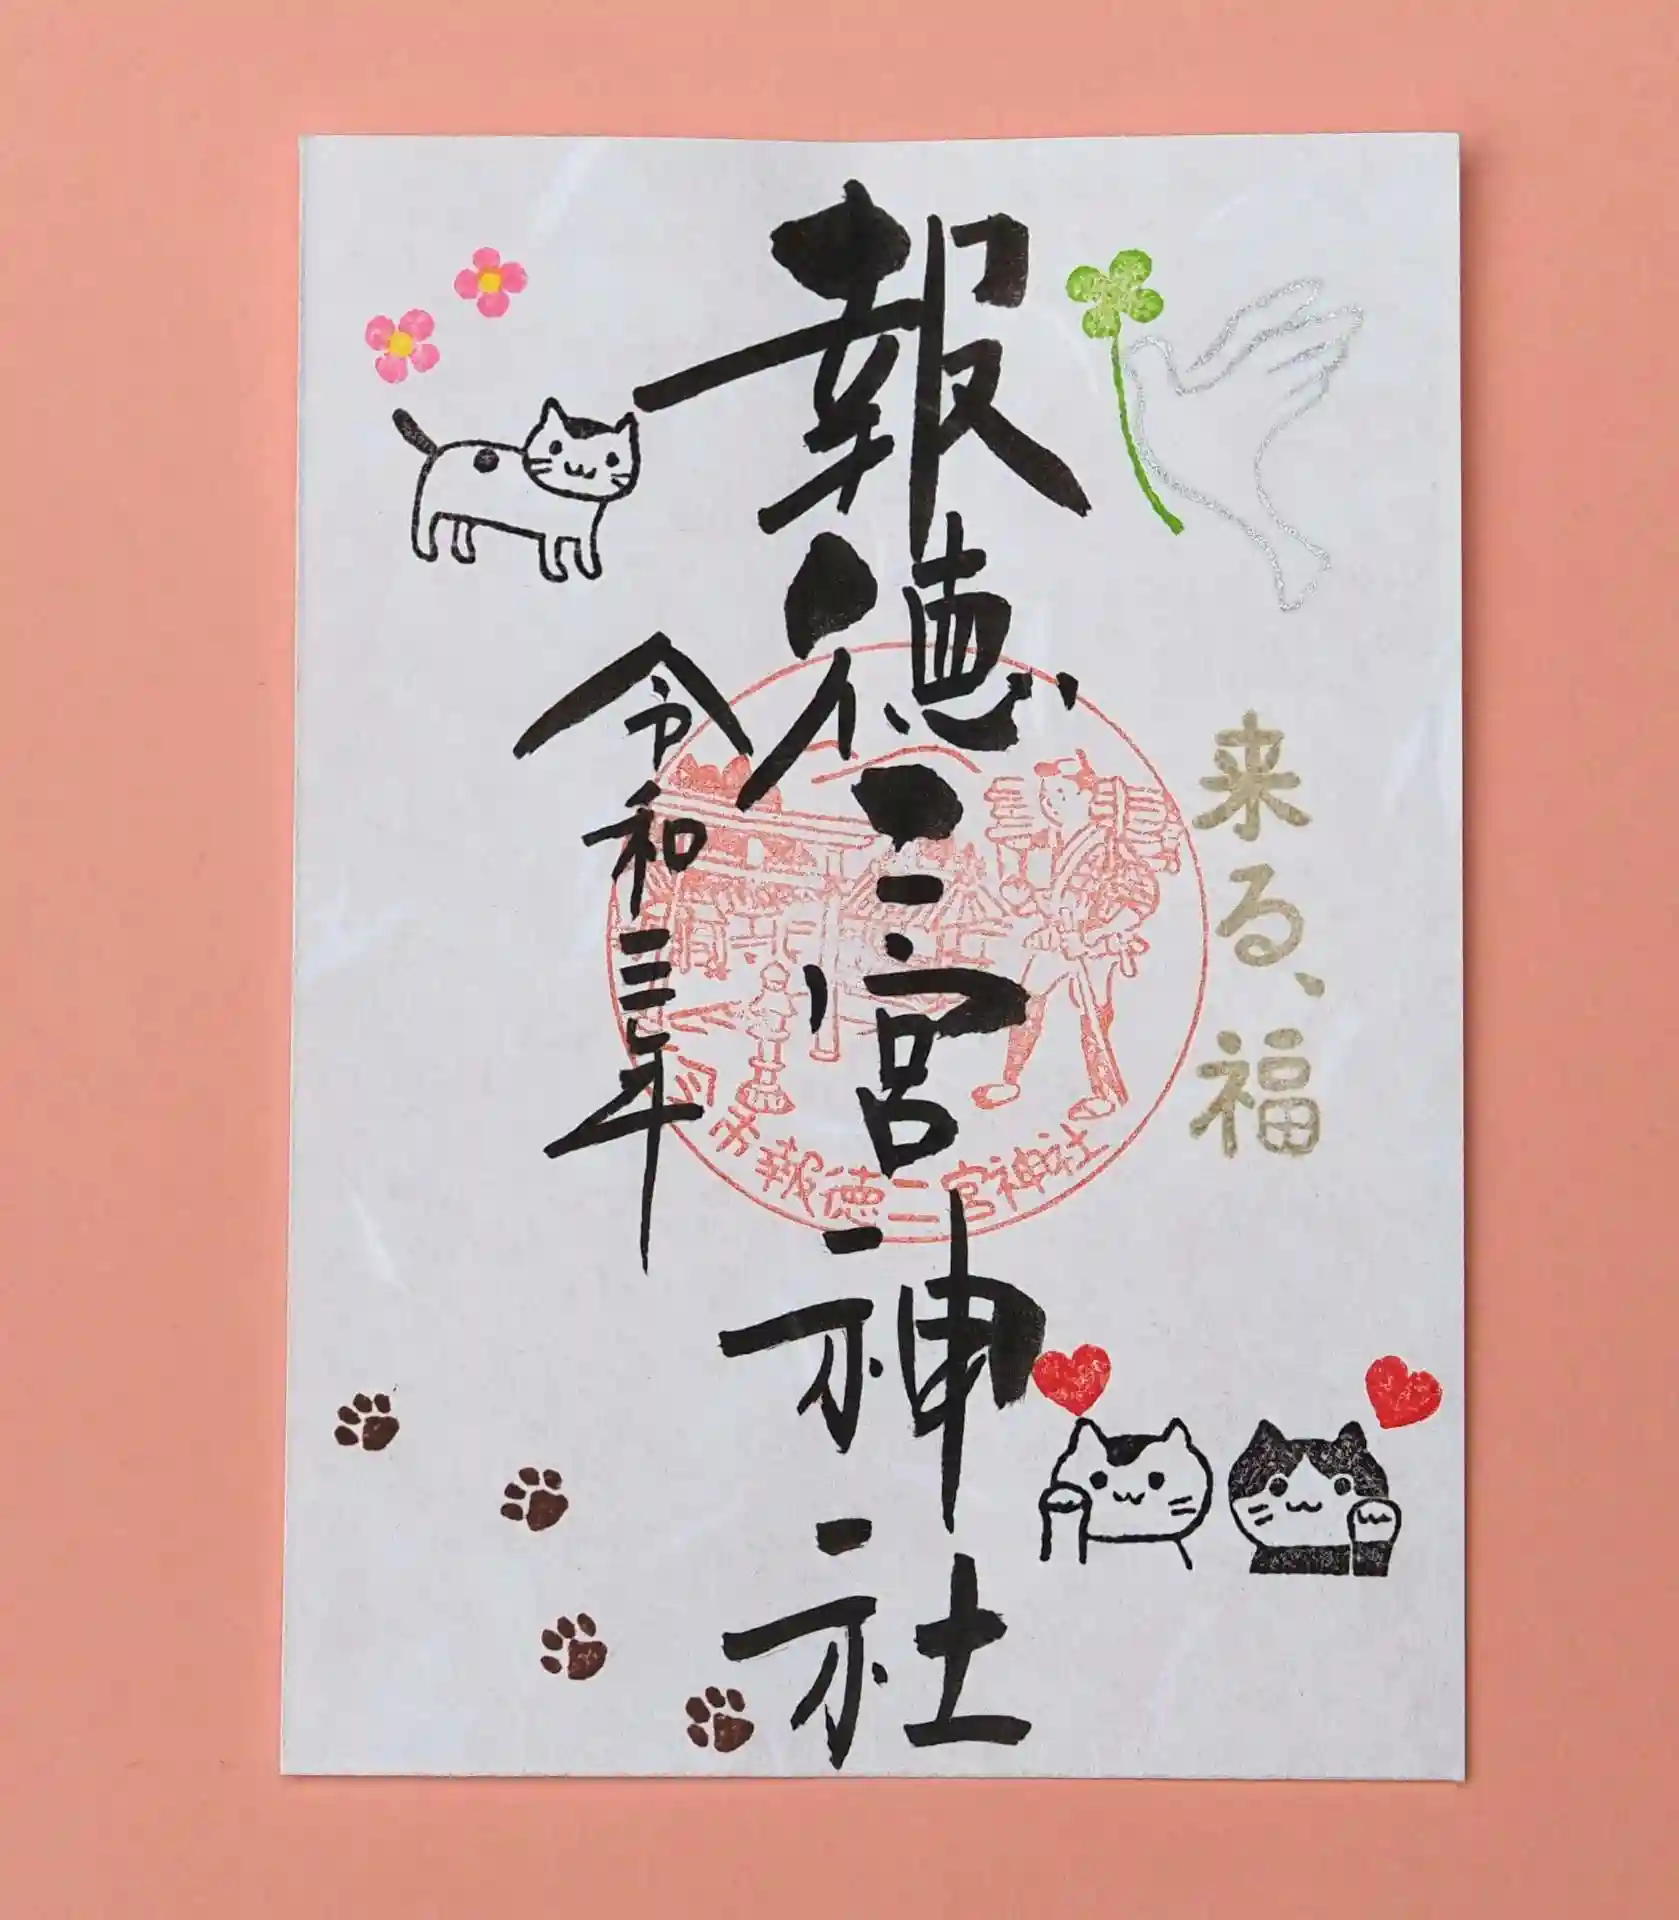 来る、福
報徳二宮神社
令和三年
市報徳二宮神社